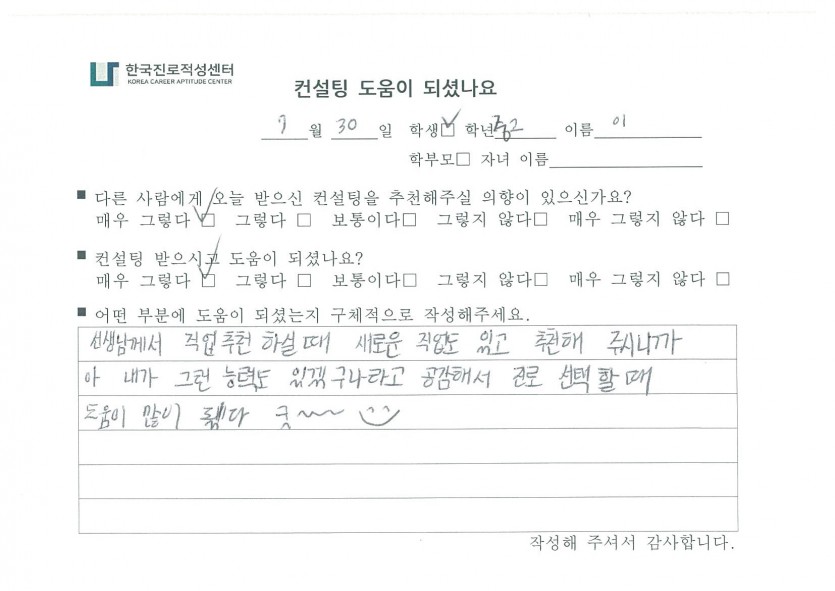 한국진로적성센터
KOREA CAREER APTITUDE CENTER
컨설팅 도움이 되셨나요
7월 30일 학생☑ 학년 중2 이름 이
학부모□ 자녀 이름
■ 다른 사람에게 오늘 받으신 컨설팅을 추천해주실 의향이 있으신가요?
매우 그렇다 ☑ 그렇다 □ 보통이다□ 그렇지 않다□ 매우 그렇지 않다 □
■ 컨설팅 받으시고 도움이 되셨나요?
매우 그렇다 ☑ 그렇다 □ 보통이다□ 그렇지 않다□ 매우 그렇지 않다 □
■ 어떤 부분에 도움이 되셨는지 구체적으로 작성해주세요.
선생님께서 직업추천 하실때 새로운 직업도 있고 추천해 주시니까
아 내가 그런 능력도 있겠구나라고 공감해서 진로 선택할때
도움이 많이 됬다 굿~~
작성해 주셔서 감사합니다.